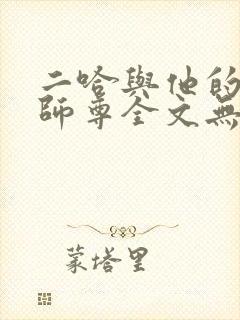 二哈與他的
師尊全文無
蒙塔里